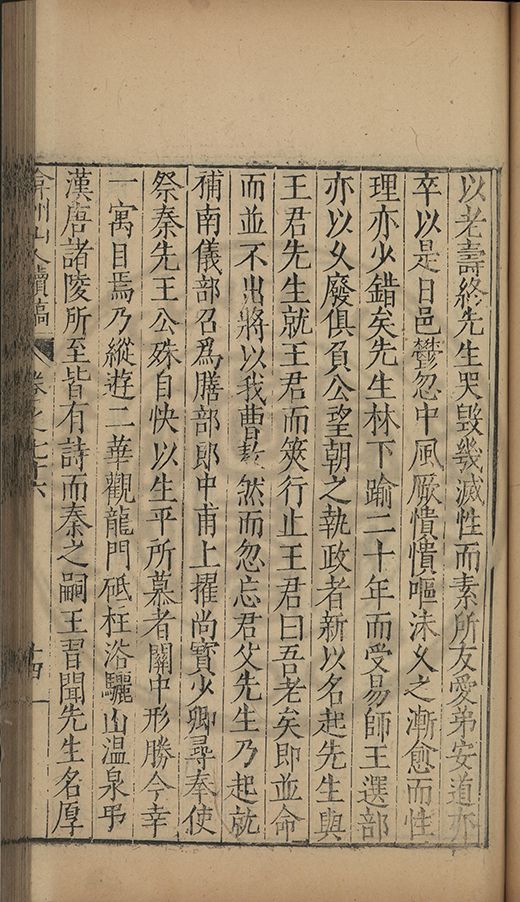 以老壽終先生哭毀幾滅性而素所友愛弟安道亦
卒以是日邑鬱忽中風厥憒憒嘔沫久之漸愈而性
理亦少錯矣先生林下踰二十年而受易師王選部
亦以久廢俱負公望朝之執政者新以名起先生與
王君先生就王君而筴行止王君曰吾老矣即並命
而並不出將以我曹敖然而忽忘君父先生乃起就
補南儀部召爲膳部郎中甫上擢尚寶少卿尋奉使
祭秦先王公殊自快以生平所慕者關中形勝今幸
一寓目焉乃縱遊二華觀龍門砥柱浴驪山溫泉弔
漢唐諸陵所至皆有詩而秦之嗣王習聞先生名厚
弇州山人續稿 卷之七十六 十四